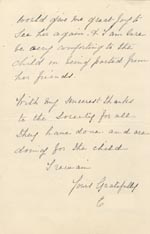 would give me great joy to
see her again. & I am sure
be very comforting to the
child on being parted from
her friends.
With my sincerest thanks
to the Society for all
they have done and are
doing for the child
I remain
Yours Gratefully
C